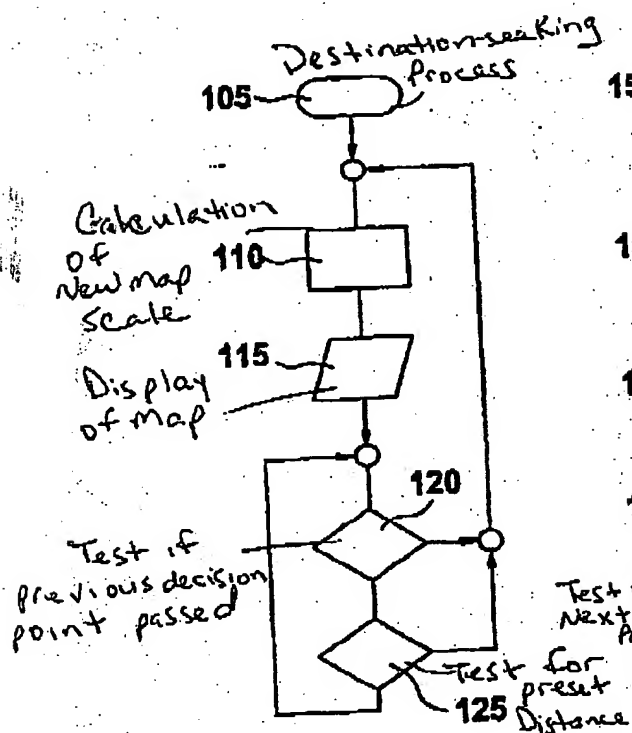 Destination-seeking
Process
105
15
Calculation
of
New map
Scale
110
1
115
1
Display
of Map
120
Test if
previous decision
point passed
Test
Next
Po
Test for
preset
Distance
125